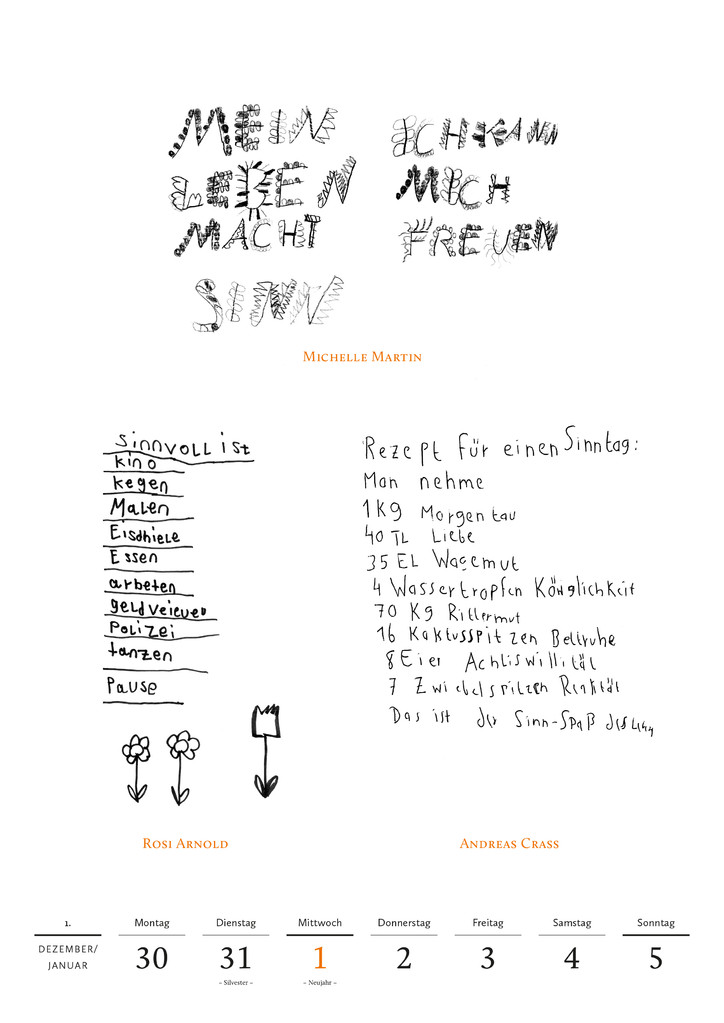 MEIN
LEBEN
MACHT
SINN
ICH KANN
MICH
FREUEN
MICHELLE MARTIN
Sinnvoll ist
kino
kegen
Malen
Eisdhiele
Essen
arbeten
geld
Polizei
tanzen
Pause
ROSI ARNOLD
Rezept für einen Sinntag:
Man nehme
1 Kg Morgentau
40 TL Liebe
35 EL Wagemut
4 Wassertropfen Königlichkeit
70 Kg Rittermut
16 Kaktusspitzen Bettruhe
8 Eier
7
Das ist der Sinn-Spaß des
ANDREAS CRASS
1. Montag Dienstag Mittwoch Donnerstag Freitag Samstag Sonntag
DEZEMBER/
JANUAR
30 31 1 2 3 4 5
– Silvester – – Neujahr –